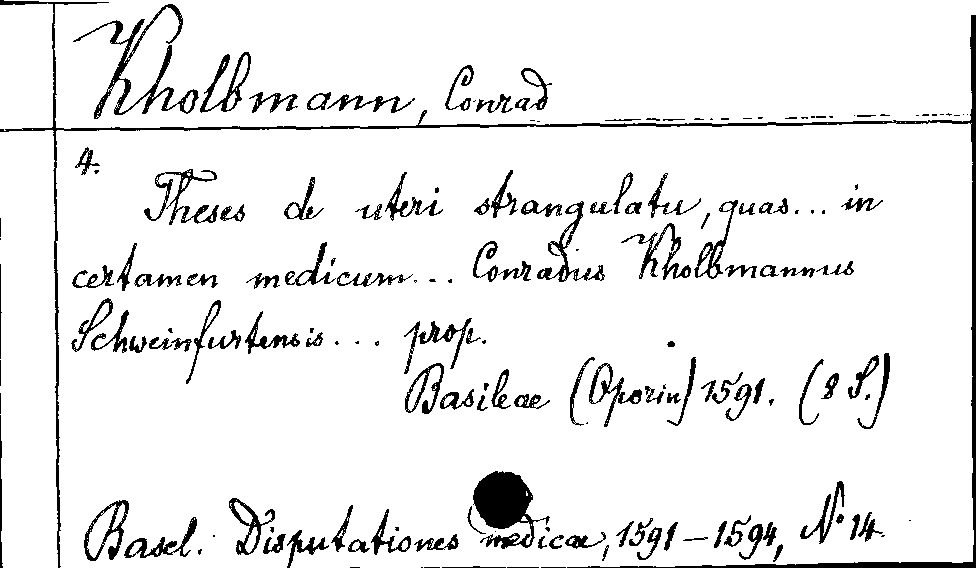 Kholbmann, Conrad
4.
Theses de uteri strangulatu, quas... in
certamen medicum... Conradus Kholbmannus
Schweinfurtensis... prop.
Basileae (Oporin) 1591. (8 S.)
Basel. Disputationes medicae, 1591-1594, No 14